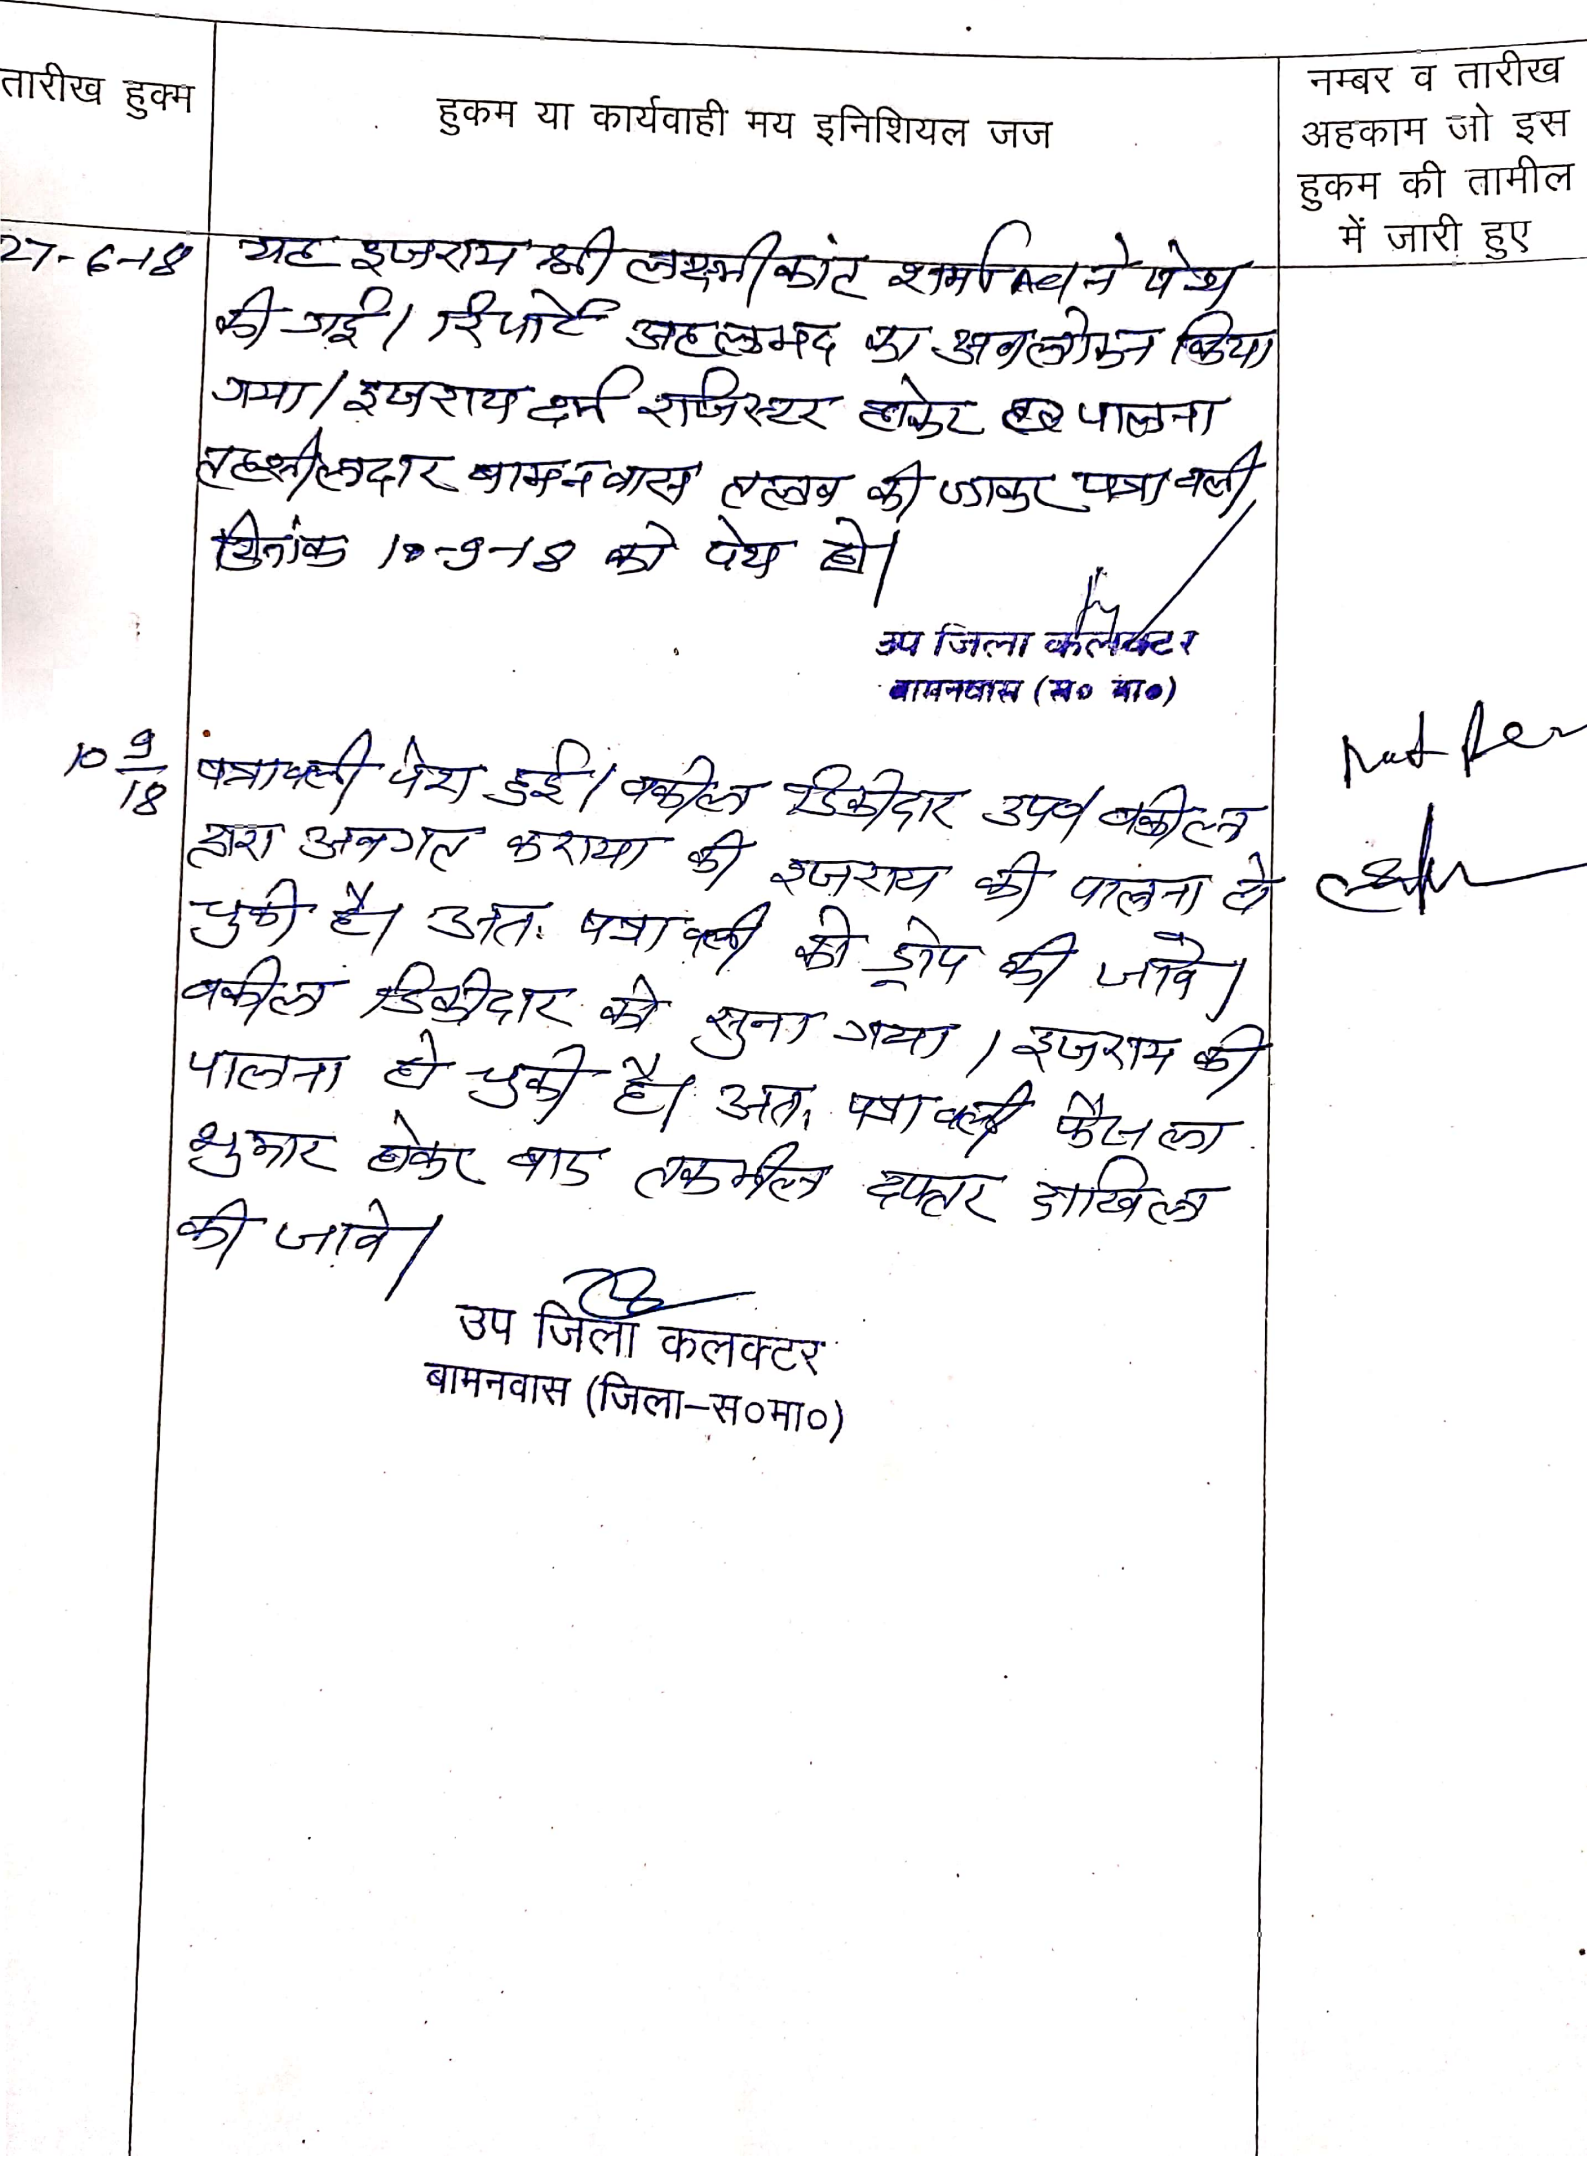 तारीख हुक्म
हुकम या कार्यवाही मय इनिशियल जज
नम्बर व तारीख
अहकाम जो इस
हुकम की तामील
में जारी हुए
27-6-18
यह इजराय श्री लक्ष्मीकांत शर्मा Adv ने पेश
की गई। रिपोर्ट अहलमद का अवलोकन किया
गया। इजराय दर्ज रजिस्टर होकर पालना
तहसीलदार बामनवास तलब की जाकर पत्रावली
दिनांक 10-9-18 को पेश हो।
उप जिला कलक्टर
बामनवास (स० मा०)
10 9/18
पत्रावली पेश हुई। वकील डिक्रीदार उप० वकील
द्वारा अवगत कराया की इजराय की पालना हो
चुकी है। अतः पत्रावली को ड्रोप की जावे।
वकील डिक्रीदार को सुना गया। इजराय की
पालना हो चुकी है। अतः पत्रावली फैसला
शुमार होकर बाद तकमील दफ्तर दाखिल
की जावे।
उप जिला कलक्टर
बामनवास (जिला-स०मा०)